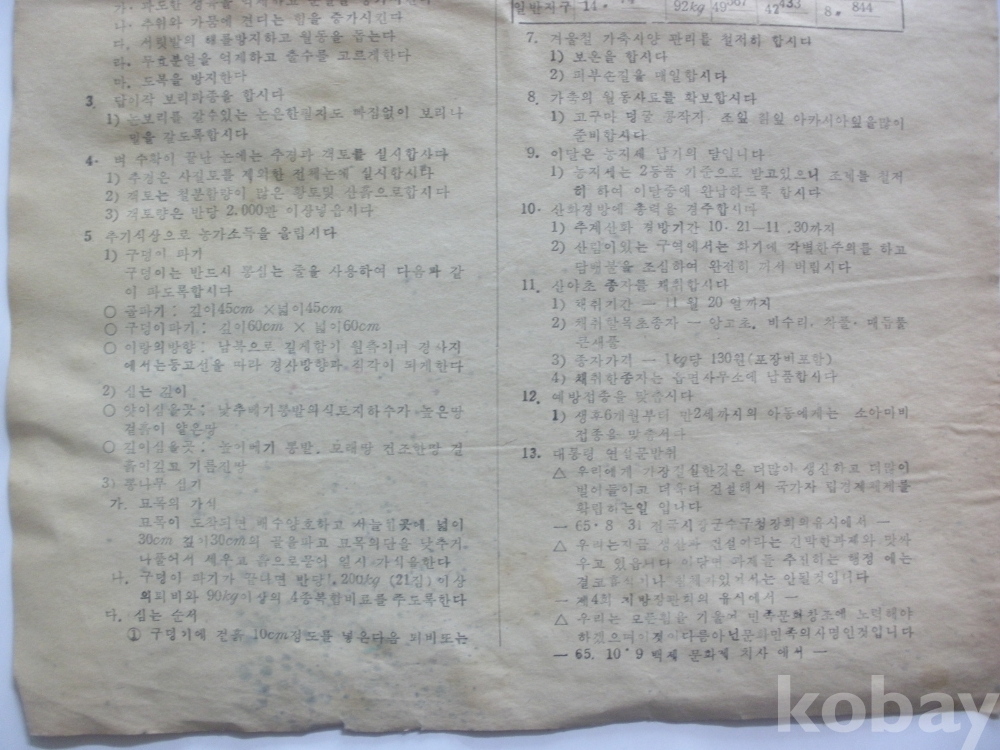 나. 추위와 가뭄에 견디는 힘을 증가시킨다
다. 서릿발의 해를방지하고 월동을 돕는다
라. 무효분얼을 억제하고 출수를 고르게한다
마. 도복을 방지한다
3. 답리작 보리파종을 합시다
1) 논보리를 갈수있는 논은한필지도 빠짐없이 보리나
밀을 갈도록합시다
4. 벼 수확이 끝난 논에는 추경과 객토를 실시합시다
1) 추경은 사질토를 제외한 전체논에 실시합시다
2) 객토는 철분함량이 많은 황토및 산흙으로합시다
3) 객토량은 반당 2.000관 이상넣읍시다
5 추기식상으로 농가소득을 올립시다
1) 구덩이 파기
구덩이는 반드시 뽕심는 줄을 사용하여 다음과 같
이 파도록합시다
○ 골파기: 깊이45cm ×넓이45cm
○ 구덩이파기: 깊이60cm × 넓이60cm
○ 이랑의방향: 남북으로 길게함이 원측이며 경사지
에서는등고선을 따라 경사방향과 직각이 되게한다
2) 심는 깊이
○ 얏이심을곳: 낮추베기뽕밭의식토지하수가 높은땅
겉흙이 얕은땅
○ 깊이심을곳: 높이베기 뽕밭. 모래땅 건조한땅 겉
흙이깊고 기름진땅
3) 뽕나무 심기
가. 묘목의 가식
묘목이 도착되면 배수양호하고 서늘한곳에 넓이
30cm 깊이30cm의 골을파고 묘목의단을 낮추거
나풀어서 세우고 흙으로묻어 일시 가식을한다
나. 구덩이 파기가 끝나면 반당1.200kg (21짐)이상
의퇴비와 90kg이상의 4종복합비료를 주도록한다
다. 심는 순서
① 구덩이에 겉흙 10cm정도를 넣은다음 퇴비또는
일반지구 14. 92kg
8. 844
7. 겨울철 가축사양 관리를 철저히 합시다
1) 보온을 합시다
2) 피부손질을 매일합시다
8. 가축의 월동사료를 확보합시다
1) 고구마 덩굴 콩깍지. 조잎 아카시아잎을많이
준비합시다
9. 이달은 농지세 납기의 달입니다
1) 농지세는 2등품 기준으로 받고있으니 조제를 철저
히 하여 이달중에 완납하도록 합시다
10. 산화경방에 총력을 경주합시다
1) 추계산화 경방기간 10.21-11.30까지
2) 산림이있는 구역에서는 화기에 각별한주의를 하고
담뱃불을 조심하여 완전히 꺼서 버립시다
11. 산야초 종자를 채취합시다
1) 채취기간 — 11월 20일까지
2) 채취할목초종자 — 비수리.
큰새풀
3) 종자가격 — 1kg당 130원(포장비포함)
4) 채취한종자는 읍면사무소에 납품합시다
12. 예방접종을 맞춥시다
1) 생후6개월부터 만2세까지의 아동에게는 소아마비
접종을 맞춥시다
13. 대통령 연설문발취
△ 우리에게 가장절실한것은 더많이 생산하고 더많이
벌어들이고 더욱더 건설해서 국가자립경제체제를
확립하는일 입니다
— 65.8 31 전국시장군수구청장회의유시에서 —
△ 우리는지금 생산과 건설이라는 긴박한과제와 맞싸
우고 있읍니다 이당면 과제를 추진하는 행정 에는
결코 있어서는 안될것입니다
— 제4회 지방장관회의 유시에서 —
△ 우리는 모든힘을 기울여 민족문화창조에 노력해야
하겠으며이것이다름아닌문화민족의사명인것입니다
— 65. 10.9 백제 문화제 치사 에서 —
kobay